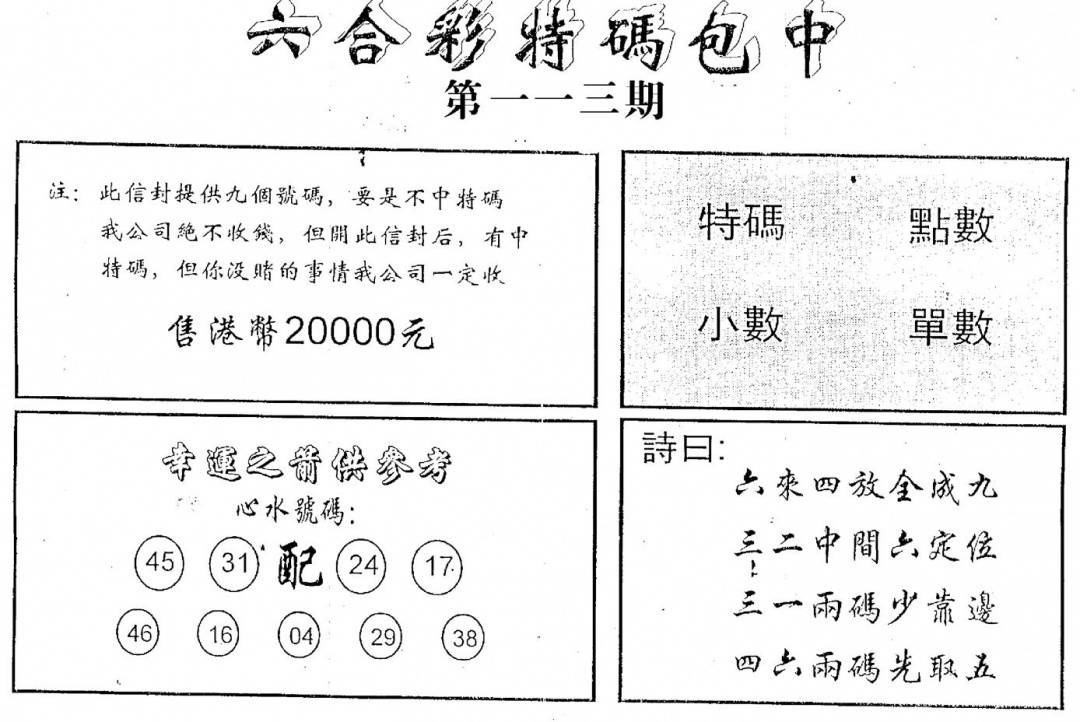 六合彩特碼包中
第一一三期
注：此信封提供九個號碼，要是不中特碼
我公司絕不收錢，但開此信封后，有中
特碼，但你没賭的事情我公司一定收
售港幣20000元
特碼 點數
小數 單數
幸運之箭供參考
心水號碼:
45 31 配 24 17
46 16 04 29 38
詩曰:
六來四放全成九
三二中間六定位
三一兩碼少靠邊
四六兩碼先取五